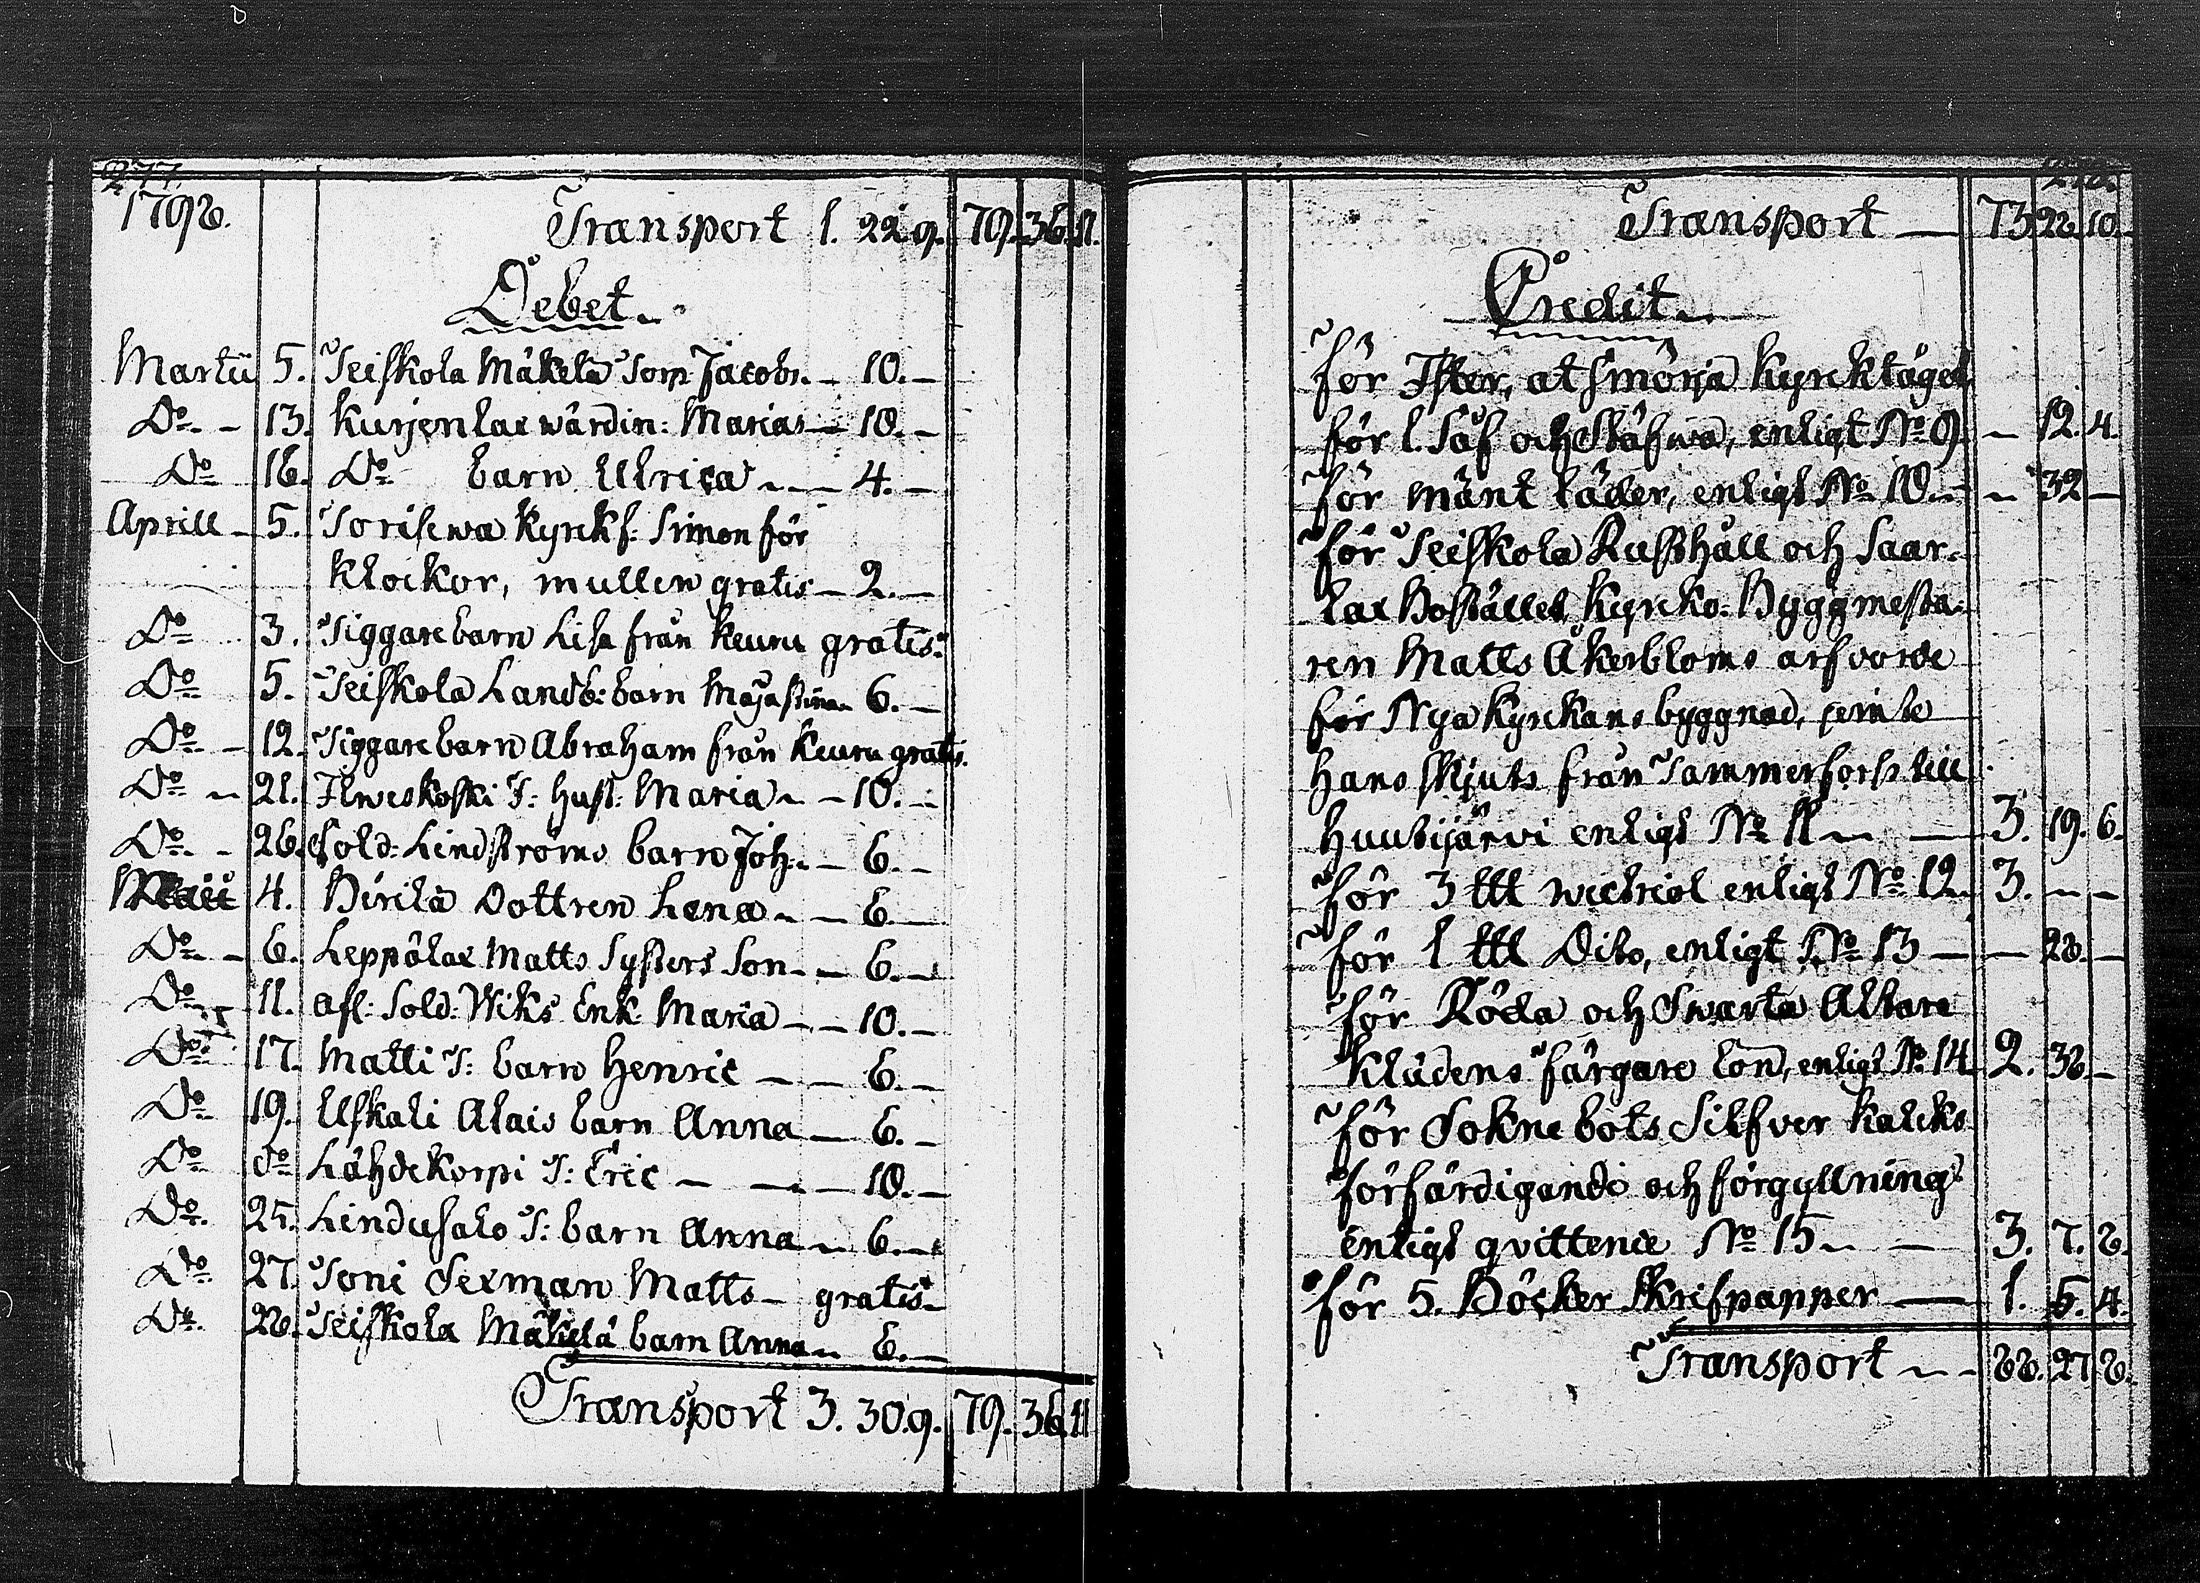 277.
1798. Transport 1. 22 9. 79. 36. 11.
Debet.
Martii 5. Teiskola Mäkelä Son Jacobs. 10.
Do. 13. Kurjenlax wärdin: Marias 10.
Do 16. Do barn Ulrica 4.
Aprill 5. Torisewa Kyrkf: Simon för
klockor, mullen gratis 2.
Do 3. Tiggare barn Lisa från Keuru gratis.
Do 5. Teiskola Landb: barn Majastina 6.
Do. 12. Tiggare barn Abraham från Keuru gratis.
Do 21. Ilweskoski T: hust: Maria 10.
Do. 26. Sold: Lindströms barn Joh. 6.
Maii 4. Hirilä Dottren Lena 6.
Do. 6. Leppälax Matts Systers Son 6.
Do. 11. afl: Sold: Wiks Enk: Maria 10.
Do. 17. Matti T: barn Henric 6.
Do 19. Uskali Alais barn Anna 6.
Do do Lähdekorpi T: Eric 10.
Do. 25. Lindusalo T: barn Anna 6.
Do. 27. Toni Sexman Matts gratis.
Do. 28. Teiskola Mäkelä barn Anna 6.
Transport 3. 30. 9. 79. 36. 11
278.
Transport 73. 28. 10.
Credit.
för Ister, at smörja kyrktåget
för 1. Säf och Stäfwa, enligt No 9. 12. 4.
för mänt läder, enligt No 10. 32
för Teiskola Rusthåll och Saar-
lax Bostället, Kyrko-Byggmesta-
ren Matts Åkerbloms arfvorde
för Nya Kyrkans byggnad, jemte
hans skjuts från Tammerfors till
Huutijärvi enligt No 11 3. 19. 6.
för 3 ttt wictriol enligt No 12. 3.
för 1 ttt Dito, enligt No 13 28.
för Röda och Swarta Altare
Klädens färgare lön, enligt No 14 2. 38
för Sokne bots Silfver kalcks
förfärdigande och förgyllning
enligt qvittence No 15 3. 7. 8.
för 5. Böcker Skrifpapper 1. 5. 4.
Transport 88. 27. 8.